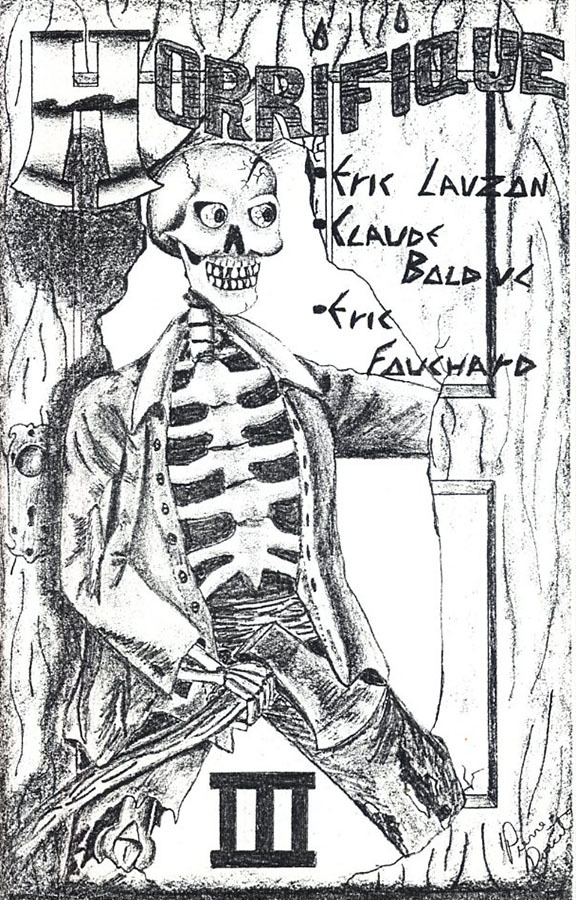 HORRIFIQUE
•Eric Lauzon
•Claude
Bolduc
•Eric
Fauchard
III
Pierre